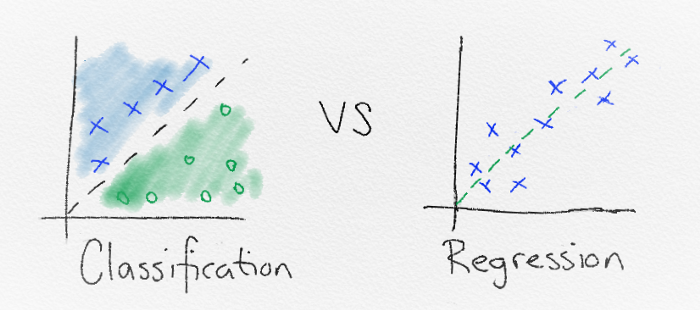 VS
Classification
Regression